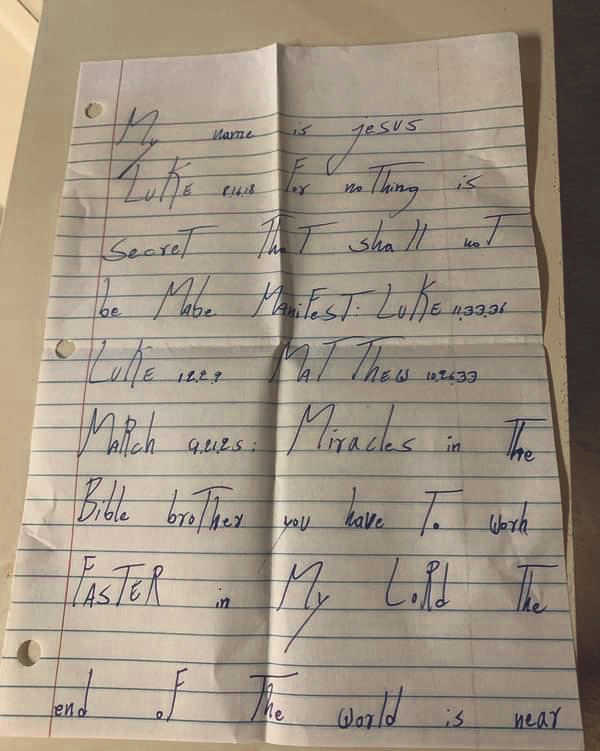 My name is jesus
LuKE 8.16.18 For noThing is
SecreT ThaT shall noT
be Mabe ManiFesT: LuKE 11.33.36
LuKE 12.2.9 MaTThew 10.26.33
MaRch 4.21.25: Miracles in The
Bible broTher you have To worh
FASTER in My LoRd The
end oF The world is near